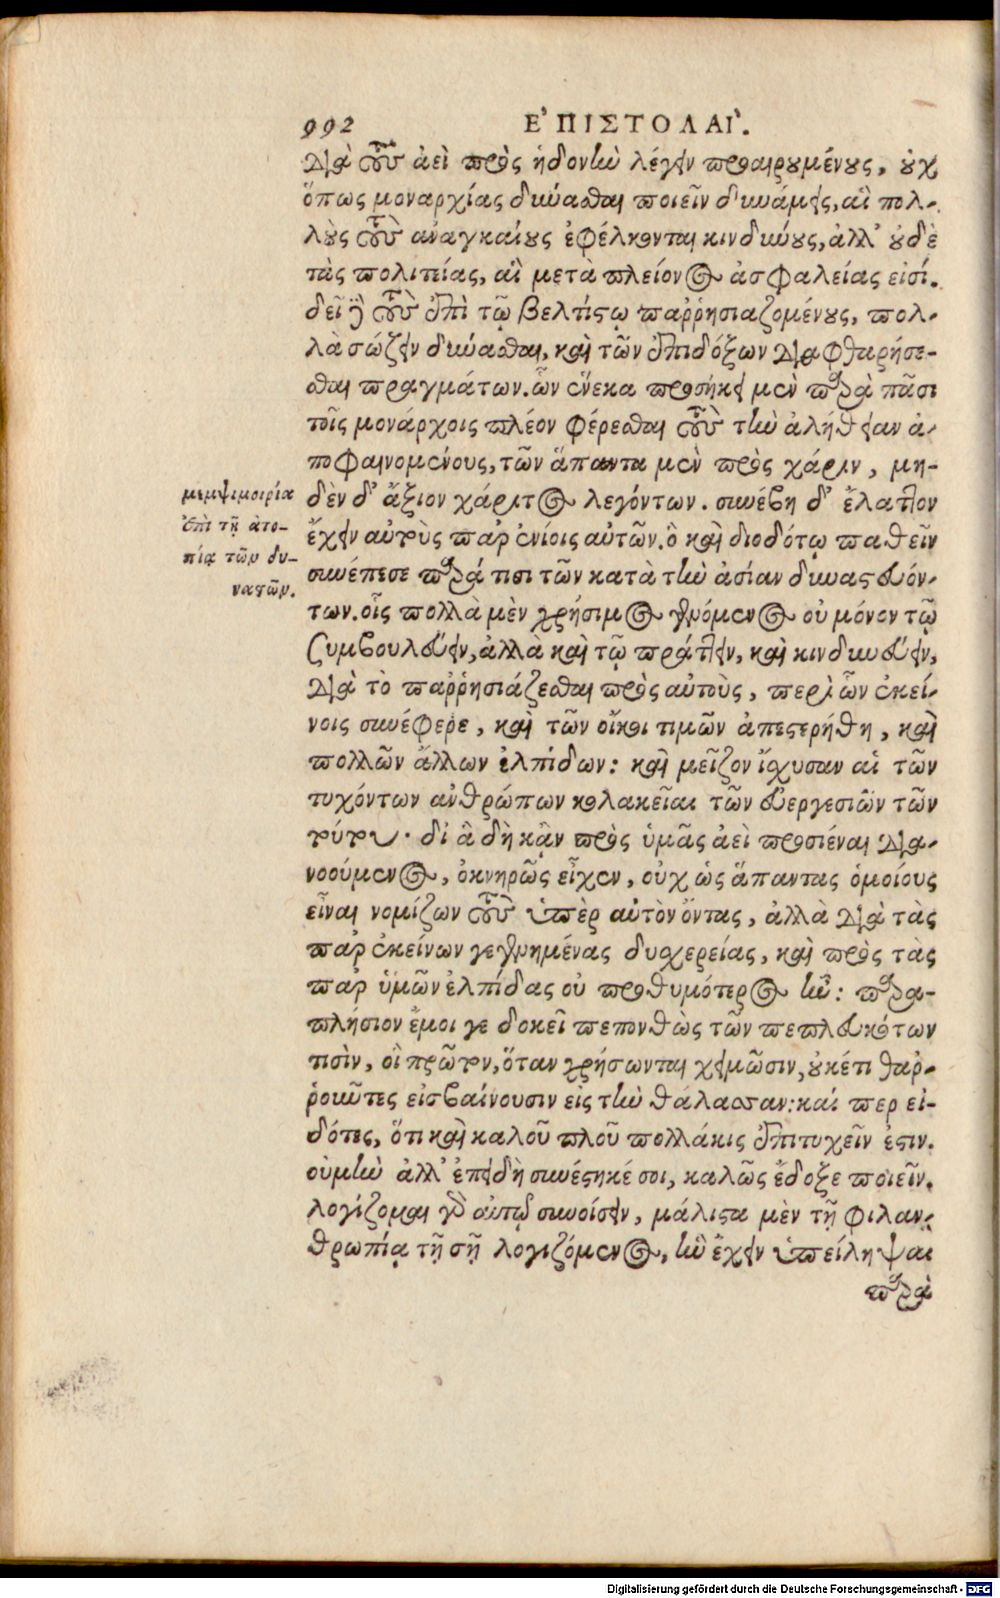 992 ΕʼΠΙΣΤΟΛΑΙʹ.
διὰ τοὺς ἀεὶ πρὸς ἡδονὴν λέγειν προαιρουμένους, οὐχ
ὅπως μοναρχίας δύνασθαι ποιεῖν δυνάμεις, αἳ πολ-
λοὺς τοὺς ἀναγκαίους ἐφέλκονται κινδύνους, ἀλλ' οὐδὲ
τὰς πολιτείας, αἳ μετὰ πλείονος ἀσφαλείας εἰσί.
δεῖ γὸ τοὺς ἐπὶ τῷ βελτίστῳ παῤῥησιαζομένους, πολ-
λὰ σώζειν δύνασθαι, καὶ τῶν ἐπιδόξων διαφθαρήσε-
σθαι πραγμάτων. ὧν ἕνεκα προσήκει μὲν παρὰ πᾶσι
τοῖς μονάρχοις πλέον φέρεσθαι τοὺς τὴν ἀλήθειαν ἀ-
ποφαινομένους, τῶν ἅπαντα μὲν πρὸς χάριν, μη-
μεμψιμοιρία
ἐπὶ τῇ ἀτο-
πίᾳ τῶν δυ-
νατῶν.
δὲν δ' ἄξιον χάριτος λεγόντων. συνέβη δ' ἔλαττον
ἔχειν αὐτοὺς παρ ἐνίοις αὐτῶν. ὃ καὶ διοδότῳ παθεῖν
συνέπεσε παρά τισι τῶν κατὰ τὴν ἀσίαν δυναστευόν-
των. οἷς πολλὰ μὲν χρήσιμος γενόμενος οὐ μόνον τῷ
ζυμβουλεύειν, ἀλλὰ καὶ τῷ πράττειν, καὶ κινδυνεύειν,
διὰ τὸ παῤῥησιάζεσθαι πρὸς αὐτοὺς, περὶ ὧν ἐκεί-
νοις συνέφερε, καὶ τῶν οἴκοι τιμῶν ἀπεστερήθη, καὶ
πολλῶν ἄλλων ἐλπίδων: καὶ μεῖζον ἴχυσαν αἱ τῶν
τυχόντων ἀνθρώπων κολακεῖαι τῶν εὐεργεσιῶν τῶν
τούτου. δι ἃ δὴ κᾂν πρὸς ὑμᾶς ἀεὶ προσιέναι δια-
νοούμενος, ὀκνηρῶς εἶχεν, οὐχ ὡς ἅπαντας ὁμοίους
εἶναι νομίζων τοὺς ὑπὲρ αὐτὸν ὄντας, ἀλλὰ διὰ τὰς
παρ ἐκείνων γεγενημένας δυσχερείας, καὶ πρὸς τὰς
παρ ὑμῶν ἐλπίδας οὐ προθυμότερος ἦν: παρα-
πλήσιον ἔμοι γε δοκεῖ πεπονθὼς τῶν πεπλευκότων
τισὶν, οἳ πρῶτον, ὅταν χρήσωνται χειμῶσιν, οὐκέτι θαῤ-
ῥοῦντες εἰσβαίνουσιν εἰς τὴν θάλασσαν: καί περ εἰ-
δότες, ὅτι καὶ καλοῦ πλοῦ πολλάκις ἐπιτυχεῖν ἐστιν.
οὐμὴν ἀλλ' ἐπειδὴ συνέστηκέ σοι, καλῶς ἔδοξε ποιεῖν.
λογίζομαι γὸ αὐτῷ συνοίσειν, μάλιστα μὲν τῇ φιλαν-
θρωπίᾳ τῇ σῇ λογιζόμενος, ἣν ἔχειν ὑπείληψαι
παρὰ
Digitalisierung gefördert durch die Deutsche Forschungsgemeinschaft - DFG